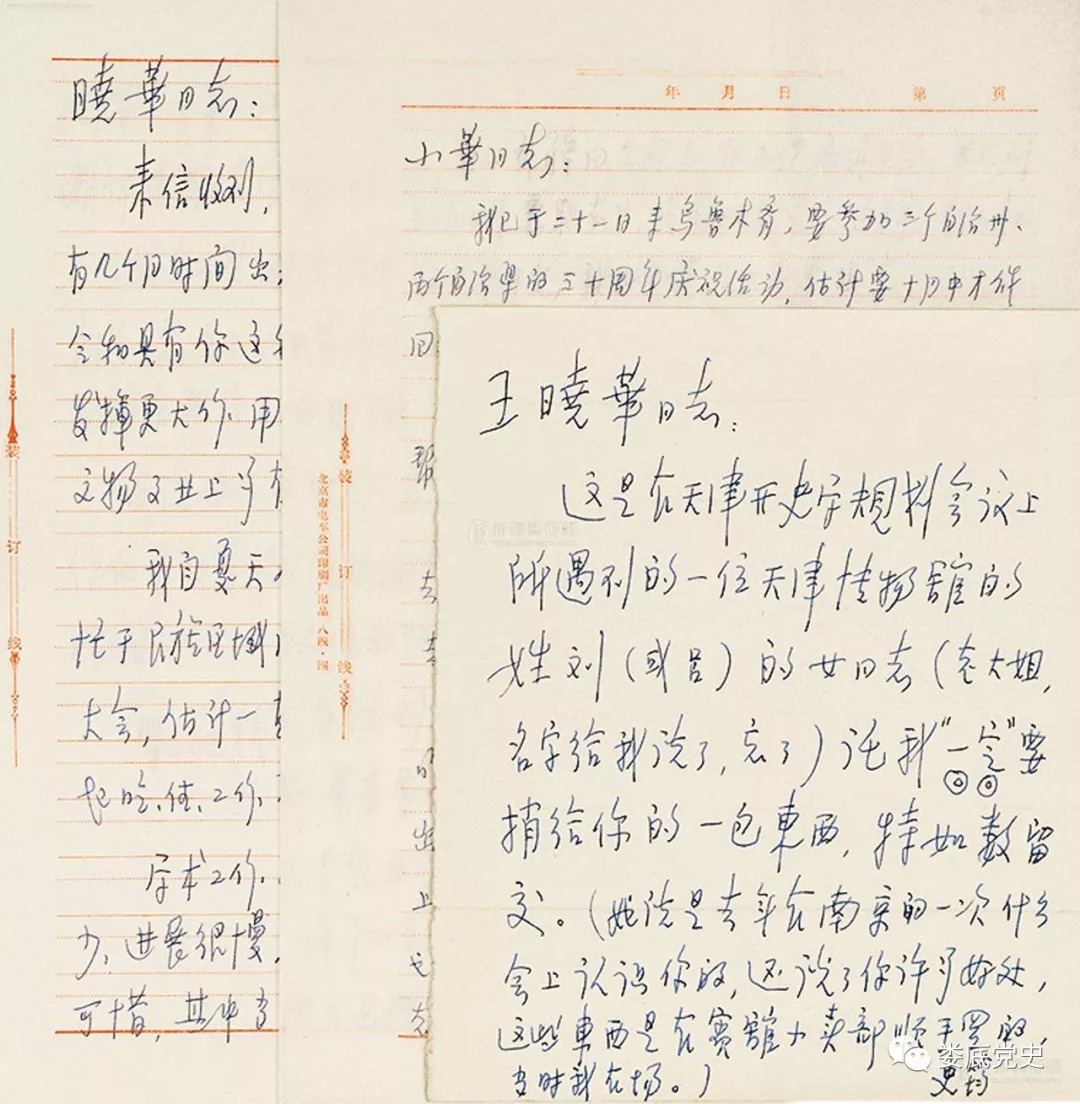 曉華同志：
来信收到，
有几个月时间出
会物具有你这
发揮更大作用
文物文世上
我自夏天
忙于民族区域
大会，估计一
起吃、住、工作、
学术工作、
少，进展很慢，
可惜，其中
装
订
线
年 月 日 第 页
小華同志：
我已于二十一日来乌鲁木齐，要参加三个自治州、
两个自治县的三十周年庆祝活动，估计要十月中才能
回
帮
去
的
出
上
装
订
线
北京市电车公司印刷厂出品 八四·四
王曉華同志：
这是在天津开史学规划会议上
所遇到的一位天津博物館的
姓刘（或吕）的女同志（老大姐，
名字给我说了，忘了）托我“一定”要
捎给你的一包東西，特如数留
交。（她说是去年在南京的一次什么
会上认识你的，还说了你许多好处，
这些東西是在賓館小卖部顺手买的，
当时我在场。）
史筠
娄底党史